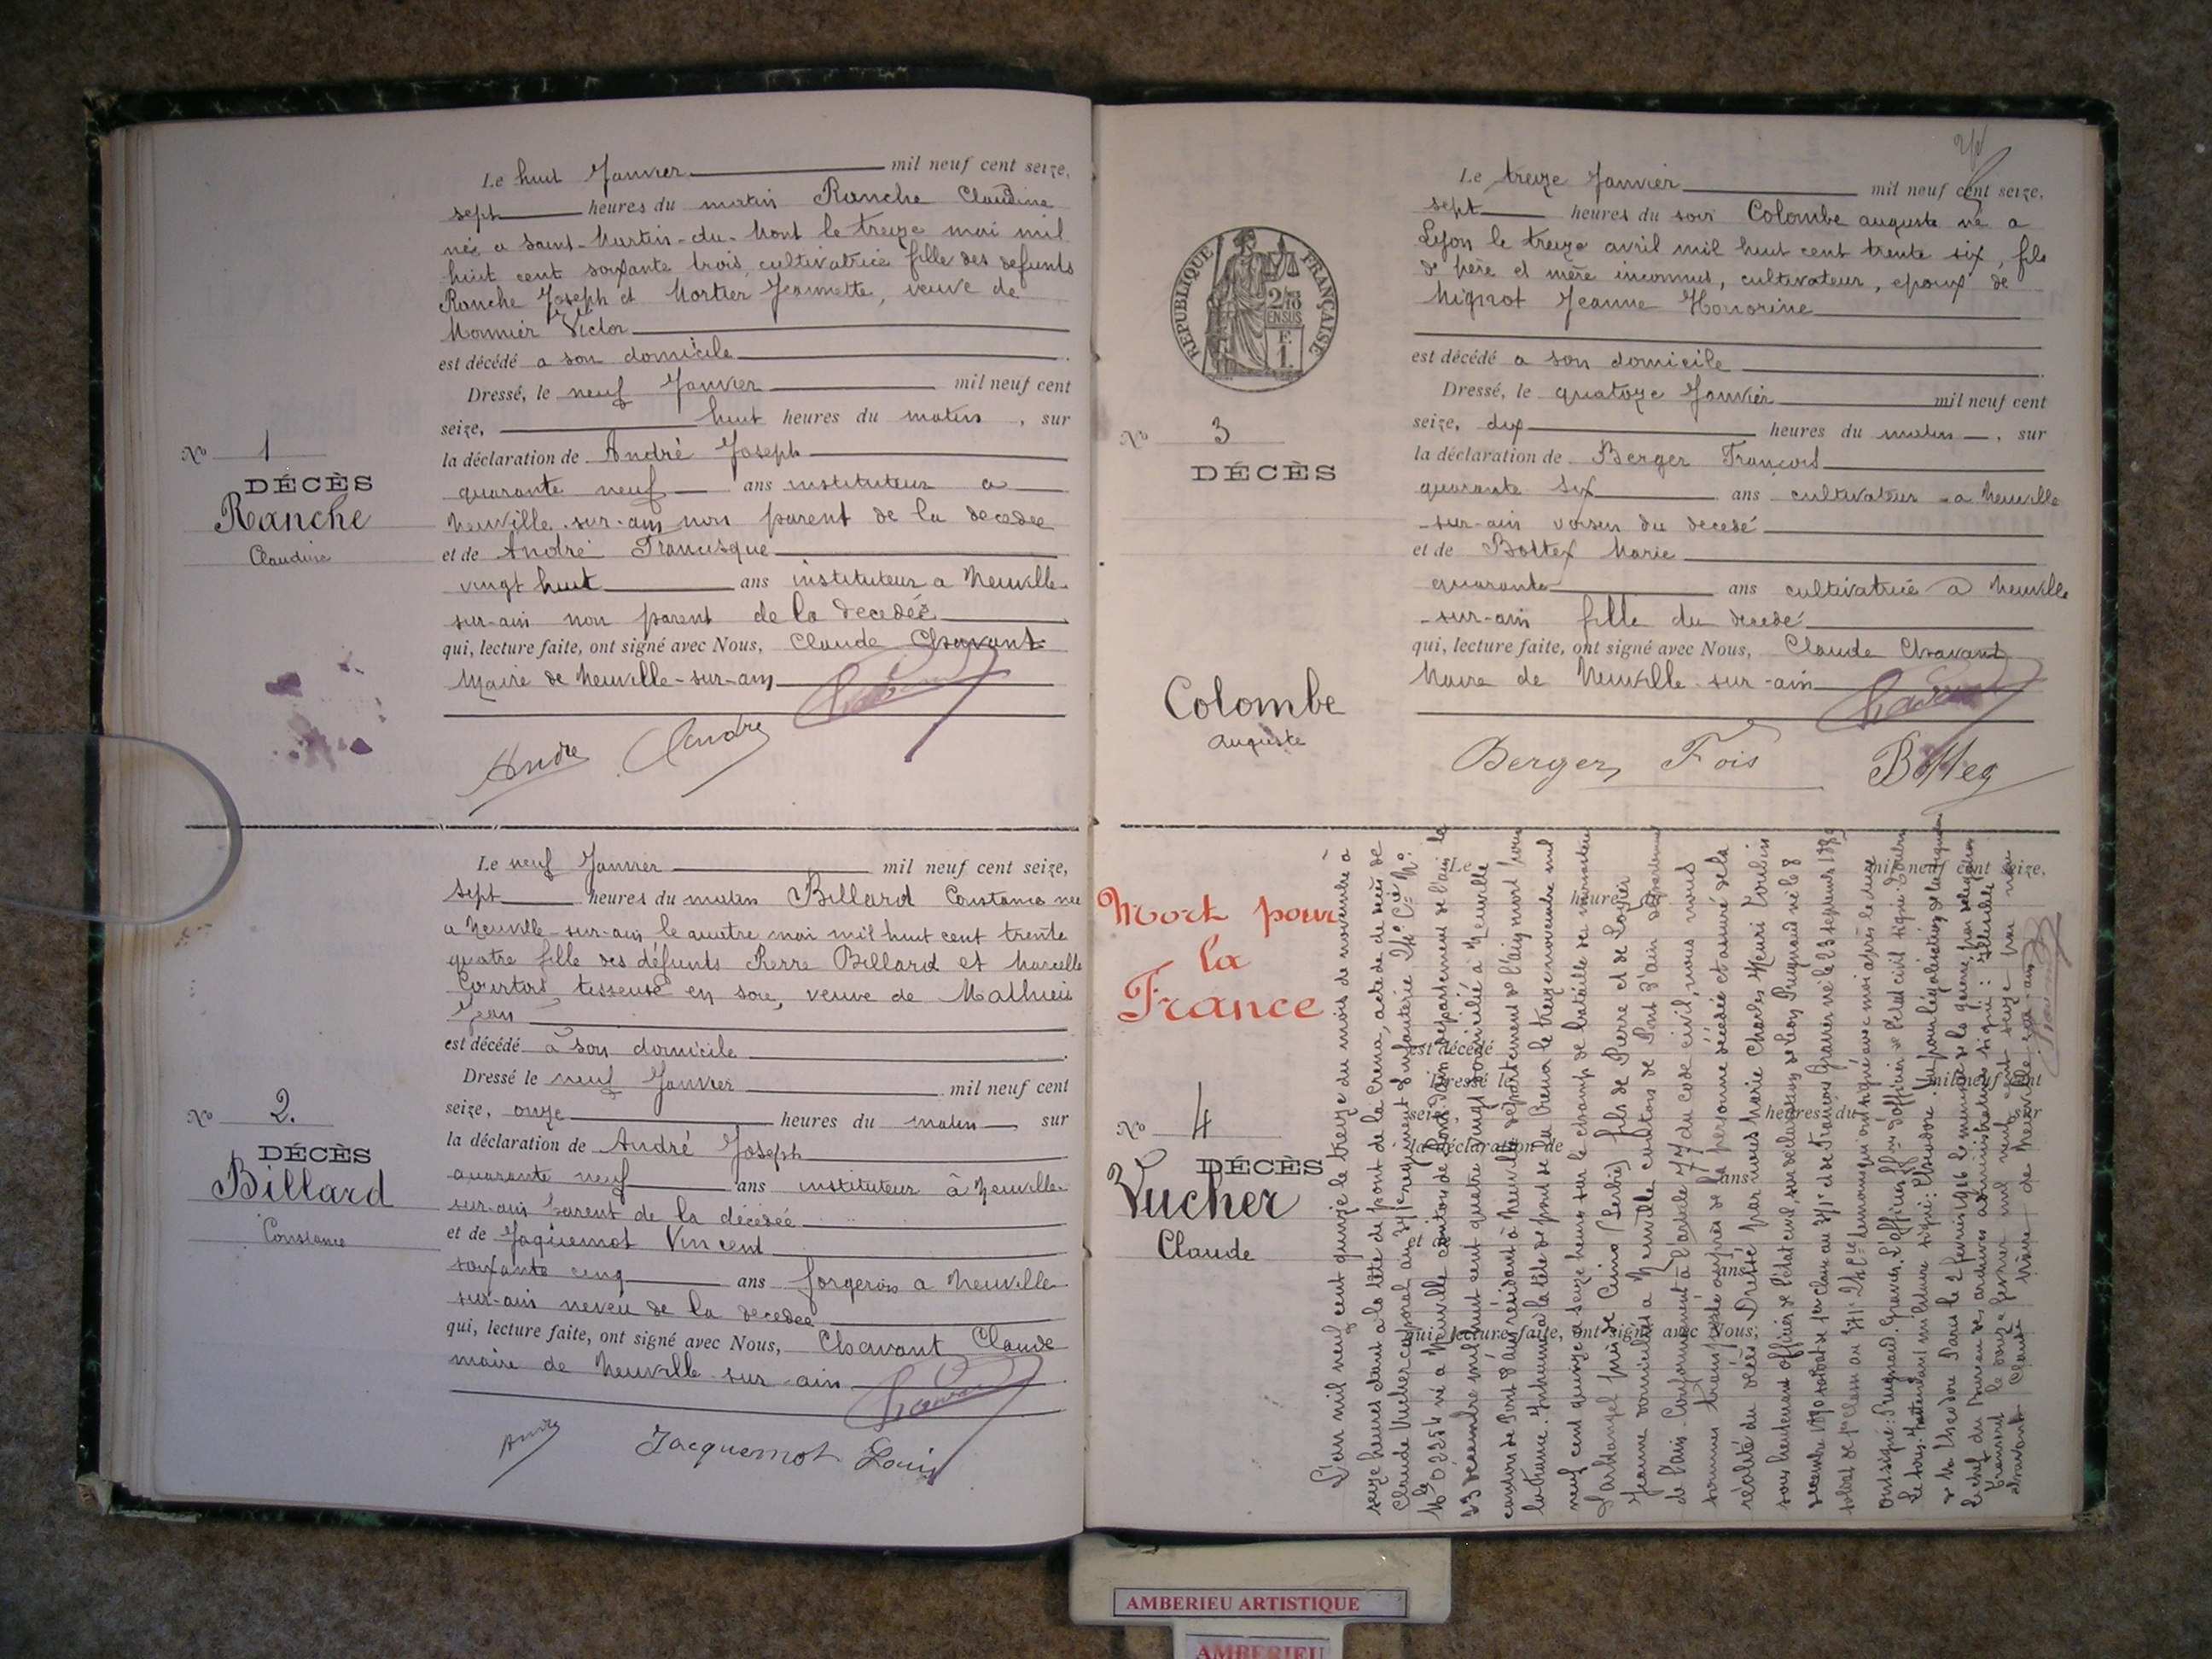 Le huit Janvier mil neuf cent seize,
sept heures du matin Ranche Claudine
née a Saint-Martin-du-Mont le treize mai mil
huit cent soixante trois, cultivatrice fille des defunts
Ranche Joseph et Mortier Jeannette, veuve de
Monnier Victor
est décédé a son domicile
Dressé, le neuf Janvier mil neuf cent
seize, huit heures du matin, sur
la déclaration de André Joseph
quarante neuf ans instituteur a
Neuville-sur-ain non parent de la decedee
et de André Francisque
vingt huit ans instituteur a Neuville-
sur-ain non parent de la decedée
qui, lecture faite, ont signé avec Nous, Claude Chavant
Maire de Neuville-sur-ain
André André
No 1
DÉCÈS
Ranche
Claudine
Le neuf Janvier mil neuf cent seize,
sept heures du matin Billard Constance née
a Neuville-sur-ain le quatre mai mil huit cent trente
quatre fille des défunts Pierre Billard et Marcelle
tisseuse en soie, veuve de Mathieu
Jean
est décédé à son domicile
Dressé le neuf Janvier mil neuf cent
seize, onze heures du matin, sur
la déclaration de André Joseph
quarante neuf ans instituteur à Neuville-
sur-ain parent de la décédée
et de Jaquemot Vincent
soixante cinq ans forgeron a Neuville
sur-ain neveu de la decedee
qui, lecture faite, ont signé avec Nous, Chavant Claude
maire de Neuville-sur-ain
André Jacquemot Louis
No 2.
DÉCÈS
Billard
Constance
RÉPUBLIQUE FRANÇAISE
Le treize Janvier mil neuf cent seize.
sept heures du soir Colombe auguste né a
Lyon le treize avril mil huit cent trente six, fils
de père et mère inconnus, cultivateur, epoux de
Mignot Jeanne Honorine
est décédé a son domicile
Dressé, le quatorze Janvier mil neuf cent
seize, dix heures du matin, sur
la déclaration de Berger François
quarante six ans cultivateur a Neuville
-sur-ain voisin du decedé
et de Bottex Marie
quarante ans cultivatrice a Neuville
-sur-ain fille du decedé
qui, lecture faite, ont signé avec Nous, Claude Chavant
Maire de Neuville-sur-ain
Berger Fois Bottex
No 3
DÉCÈS
Colombe
auguste
Mort pour
la
France
No 4
DÉCÈS
Vucher
Claude
Le mil neuf cent seize,
heures du
est décédé
Dressé le mil neuf cent
seize, heures du sur
la déclaration de
ans
et de
ans
qui, lecture faite, ont signé avec Nous;
L'an mil neuf cent quinze le treize du mois de novembre à
seize heures étant a la tête de pont de la Crena, acte de décès de
Claude Vucher caporal au 371e régiment d'infanterie 24e Cie No
Mle né a Neuville canton de Pont d'ain département de l'ain le
23 décembre mil huit cent quatre vingt domicilié à Neuville
canton de Pont d'ain résidant à Neuville département de l'ain mort pour
la france. Inhumé à la tête de pont de la Crena le treize novembre mil
neuf cent quinze a seize heures sur le champ de bataille
(Serbie) fils de Pierre et de
Jeanne domiciliés a Neuville canton de Pont d'ain département
de l'ain. Conformément à l'article 77 du code civil, nous nous
sommes transporté auprès de la personne décédée et assuré de la
réalité du décès Dressé par nous Marie Charles Henri
sous lieutenant officier de l'état civil, sur déclaration de Léon Prugnaud né le 8
décembre 1890 soldat de 1ère classe au 371e et de François Gravier né le 23 septembre 1889
soldat de 1ère classe au 371e 24e Cie témoins qui ont signé avec moi après lecture
AMBERIEU ARTISTIQUE
AMBERIEU